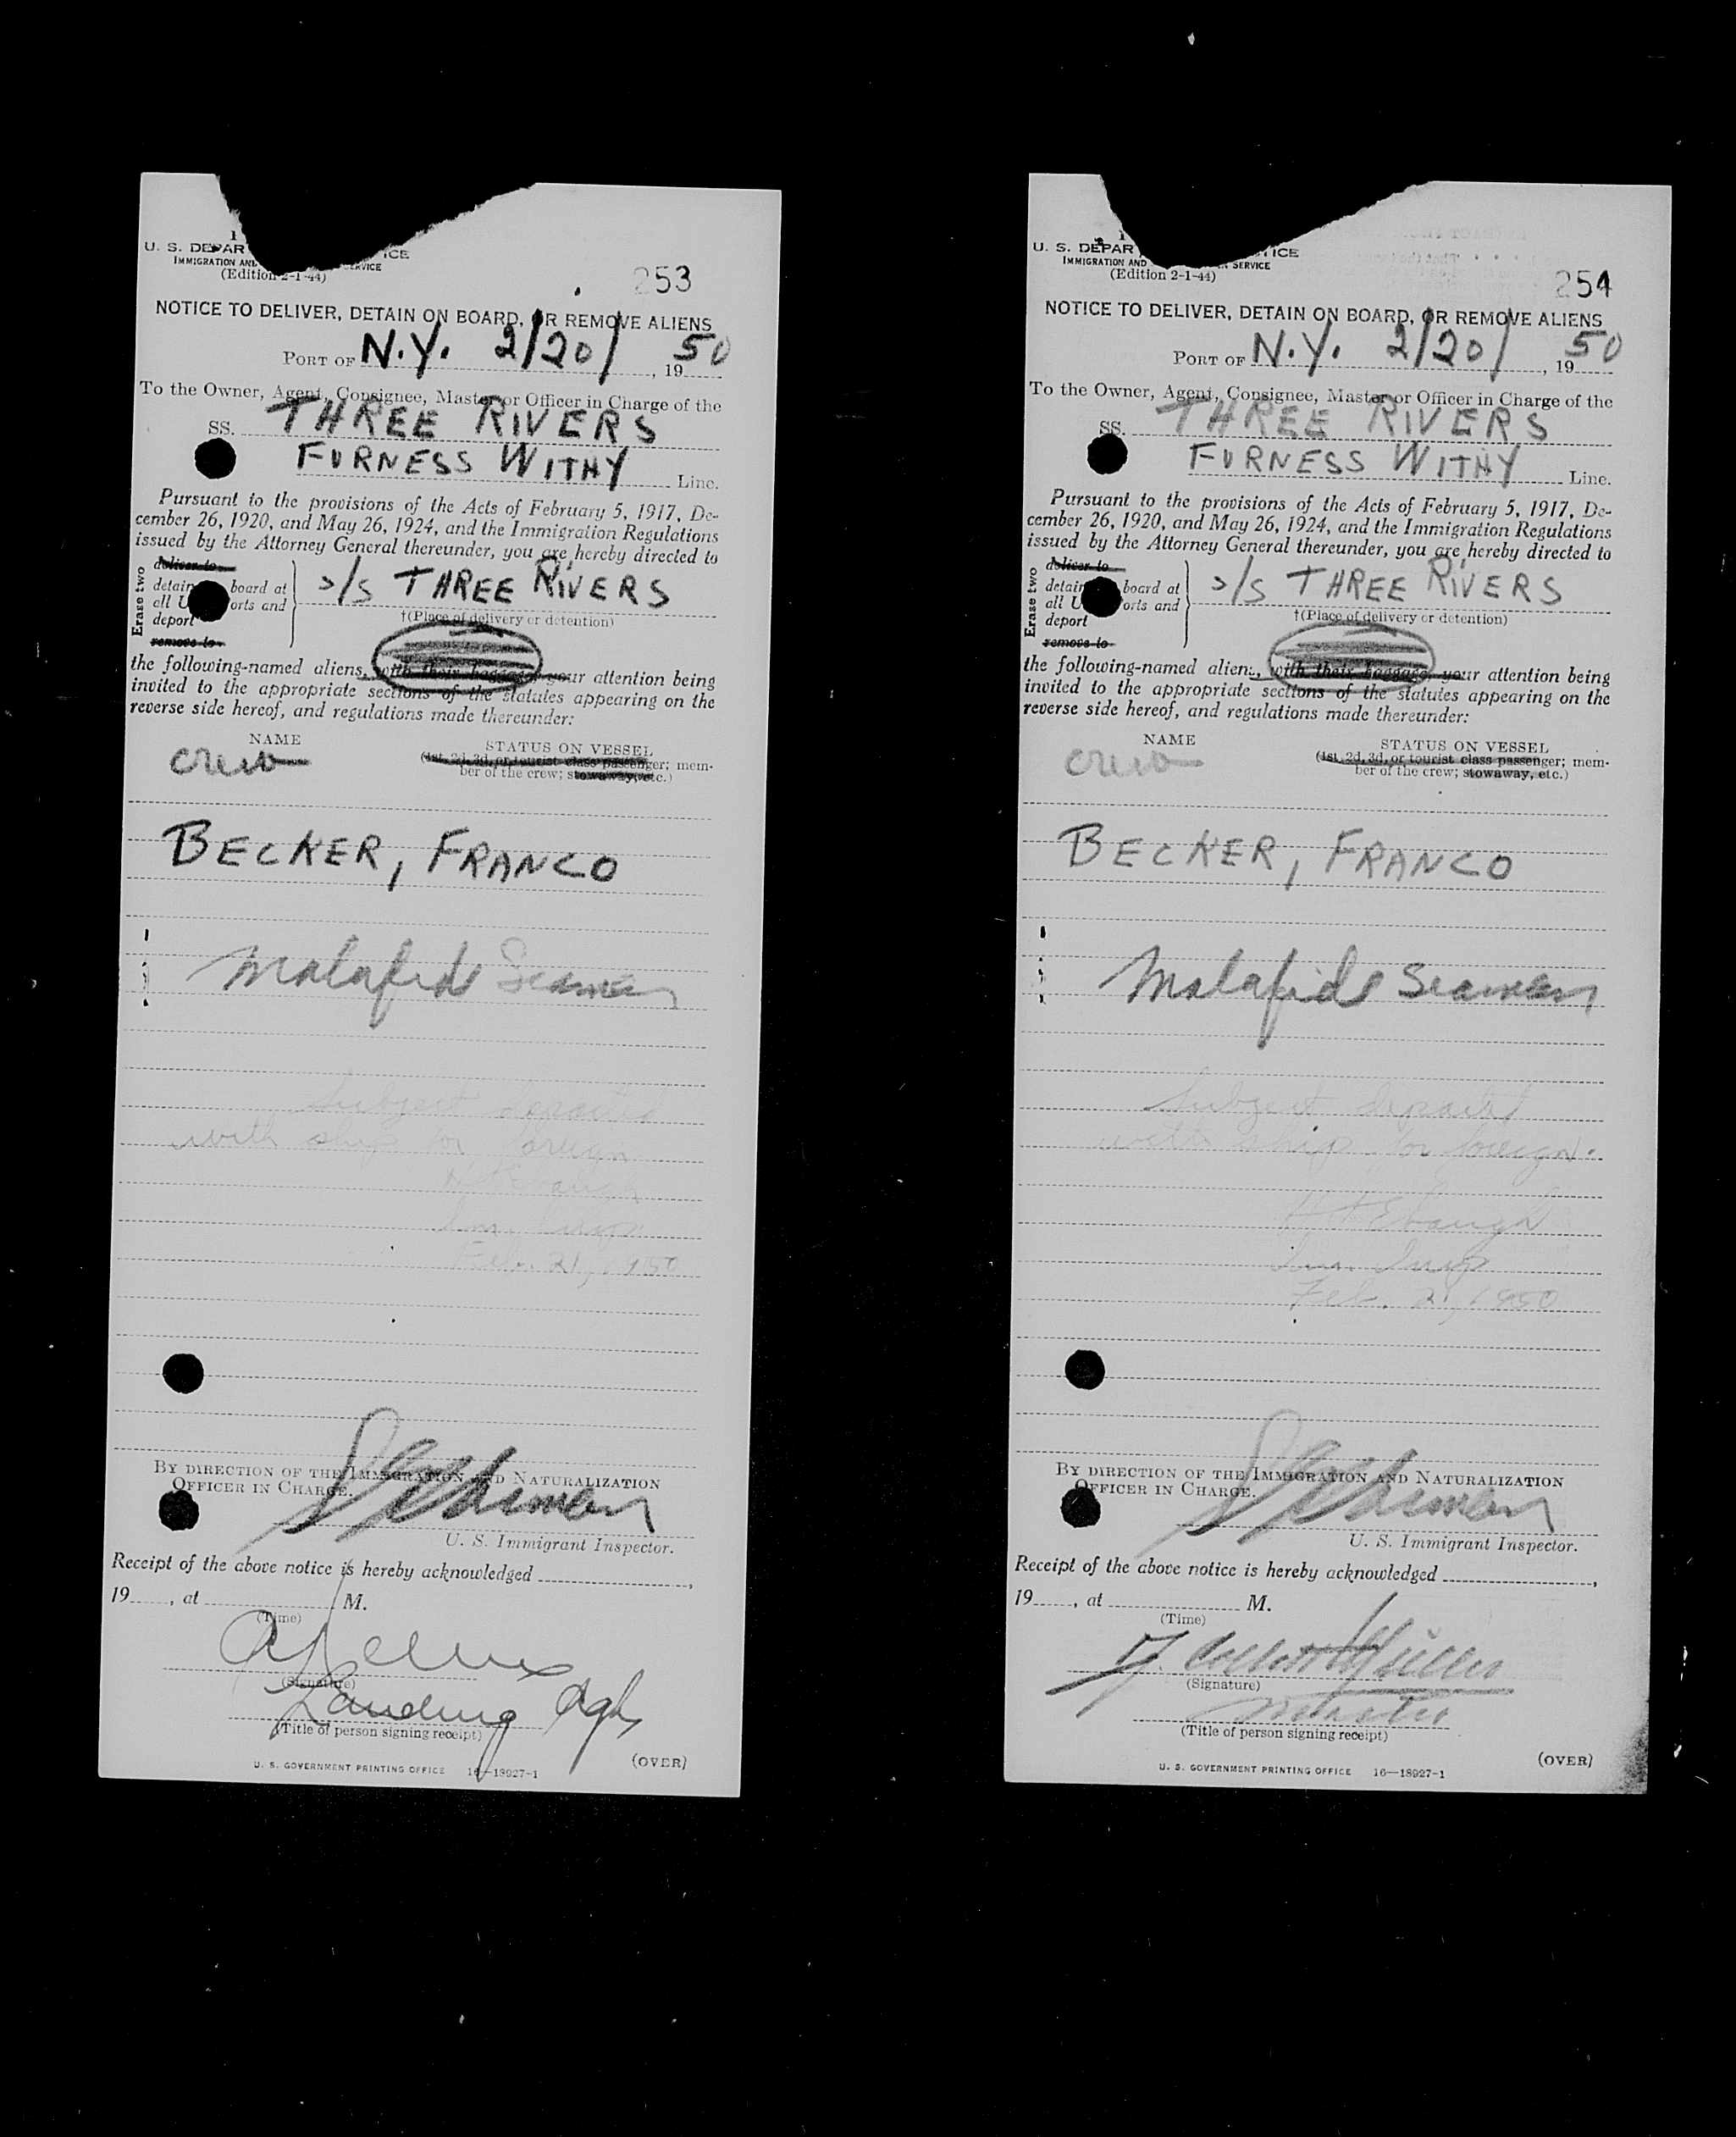 U. S. DEPAR ICE
IMMIGRATION AND SERVICE
(Edition 2-1-44)
253
NOTICE TO DELIVER, DETAIN ON BOARD, OR REMOVE ALIENS
PORT OF N.Y. 2/20/, 1950
To the Owner, Agent, Consignee, Master or Officer in Charge of the
SS. THREE RIVERS
FURNESS WITHY Line.
Pursuant to the provisions of the Acts of February 5, 1917, De-
cember 26, 1920, and May 26, 1924, and the Immigration Regulations
issued by the Attorney General thereunder, you are hereby directed to
Erase two
deliver to
detain board at
all U orts and
deport
remove to
s/s THREE RIVERS
†(Place of delivery or detention)
the following-named aliens, with their baggage, your attention being
invited to the appropriate sections of the statutes appearing on the
reverse side hereof, and regulations made thereunder:
NAME
STATUS ON VESSEL
(1st, 2d, 3d, or tourist class passenger; mem-
ber of the crew; stowaway, etc.)
crew
BECKER, FRANCO
Malafide Seaman
Subject departed
with ship for foreign
Feb. 21, 1950
BY DIRECTION OF THE IMMIGRATION AND NATURALIZATION
OFFICER IN CHARGE.
U. S. Immigrant Inspector.
Receipt of the above notice is hereby acknowledged ,
19 , at M.
(Time)
(Signature)
Landing Agt
(Title of person signing receipt)
(OVER)
U. S. GOVERNMENT PRINTING OFFICE 16—18927-1
U. S. DEPAR TICE
IMMIGRATION AND N SERVICE
(Edition 2-1-44)
254
NOTICE TO DELIVER, DETAIN ON BOARD, OR REMOVE ALIENS
PORT OF N.Y. 2/20/, 1950
To the Owner, Agent, Consignee, Master or Officer in Charge of the
SS. THREE RIVERS
FURNESS WITHY Line.
Pursuant to the provisions of the Acts of February 5, 1917, De-
cember 26, 1920, and May 26, 1924, and the Immigration Regulations
issued by the Attorney General thereunder, you are hereby directed to
Erase two
deliver to
detain board at
all U orts and
deport
remove to
s/s THREE RIVERS
†(Place of delivery or detention)
the following-named aliens, with their baggage, your attention being
invited to the appropriate sections of the statutes appearing on the
reverse side hereof, and regulations made thereunder:
NAME
STATUS ON VESSEL
(1st, 2d, 3d, or tourist class passenger; mem-
ber of the crew; stowaway, etc.)
crew
BECKER, FRANCO
Malafide Seaman
Subject departed
with ship for foreign.
Imm. Insp
Feb. 21, 1950
BY DIRECTION OF THE IMMIGRATION AND NATURALIZATION
OFFICER IN CHARGE.
U. S. Immigrant Inspector.
Receipt of the above notice is hereby acknowledged ,
19 , at M.
(Time)
(Signature)
Master
(Title of person signing receipt)
(OVER)
U. S. GOVERNMENT PRINTING OFFICE 16—18927-1